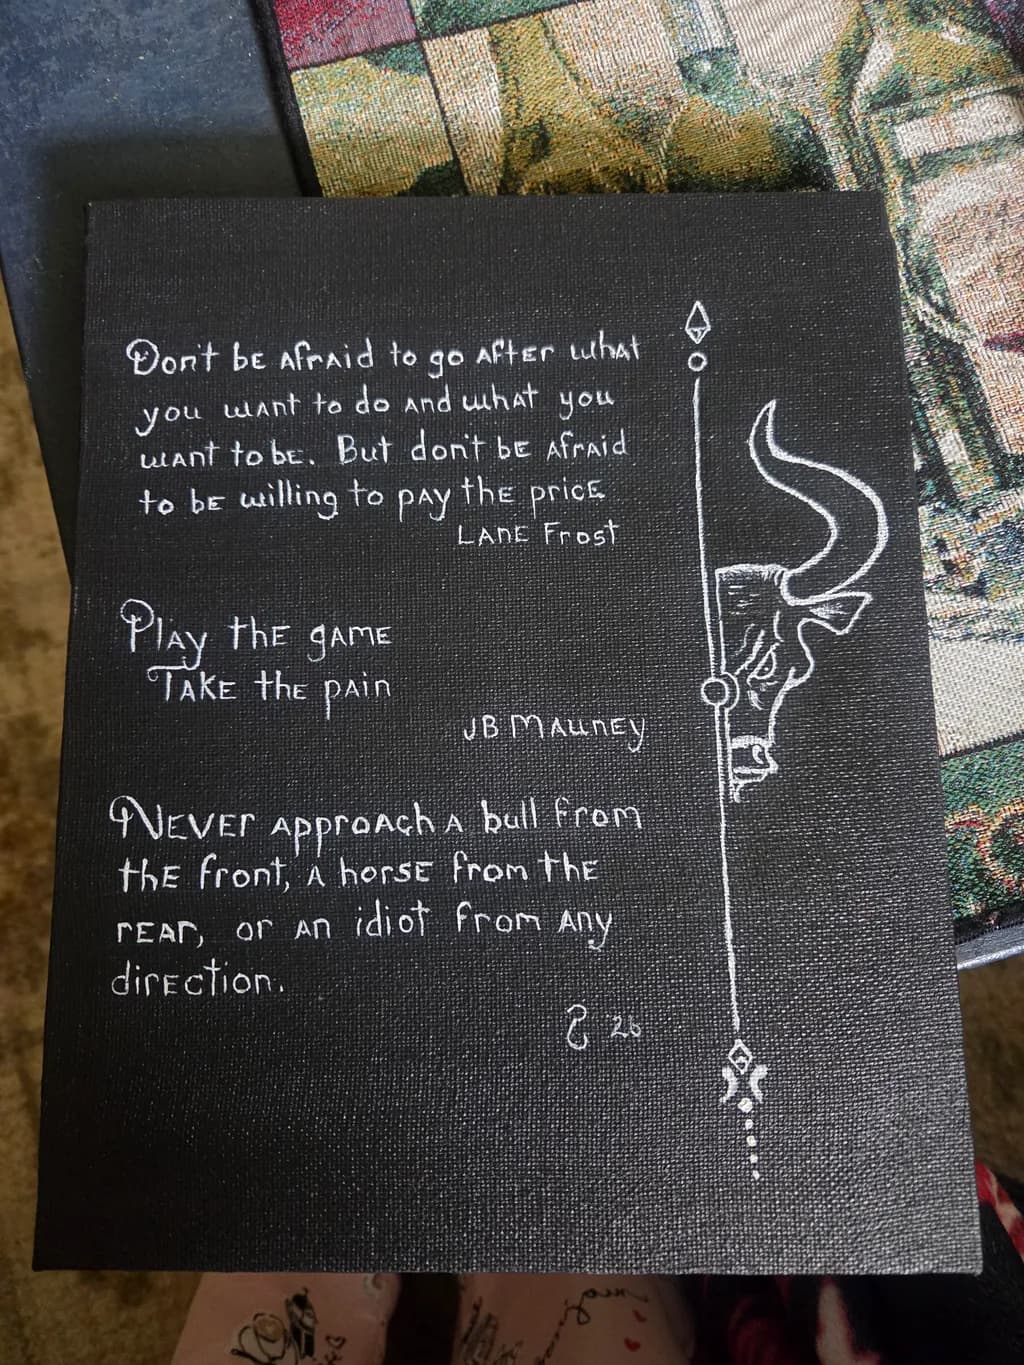 Don't be afraid to go after what
you want to do and what you
want to be. But don't be afraid
to be willing to pay the price
Lane Frost
Play the game
Take the pain
JB Mauney
Never approach a bull from
the front, a horse from the
rear, or an idiot from any
direction.
26